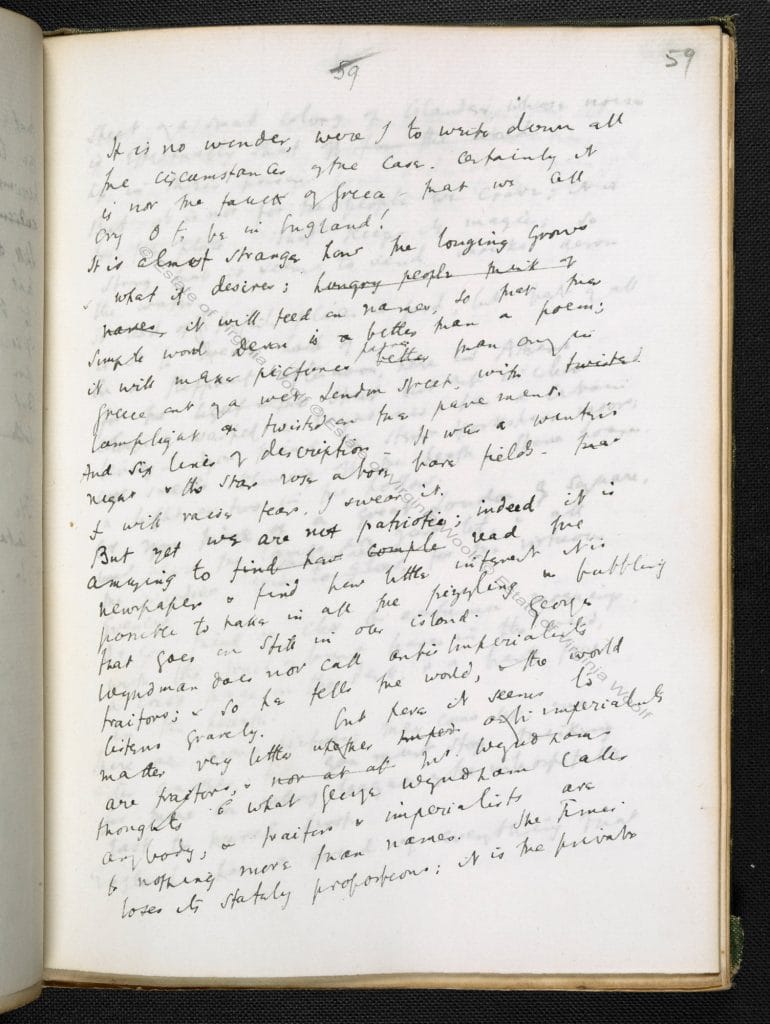 59
59
It is no wonder, were I to write down all
the circumstances of the case. Certainly it
is not the fault of Greece that we all
cry O to be in England!
It is almost strange how the longing grows
what it desires; hungry people think of
names it will feed on names, so that the
simple word Devon is a better than a poem;
it will make pictures better than any in
Greece out of a wet London street, with twisted
lamplight twisted on the pavement.
And six lines of description - It was a winter's
night & the stars rose above bare fields - that
I will raise tears, I swear it.
But yet we are not patriotic; indeed it is
amazing to find how comple read the
newspaper & find how little interest it is
possible to take in all the & bubbling
that goes on still in our island. George
Wyndman does not call anti-Imperialists
traitors; & so he tells the world, & the world
listens gravely. But here it seems to
matter very little whether Imper anti imperialists
are traitors, & not at at Mr. Wyndhams
thoughts & what George Wyndham calls
anybody; & traitors & imperialists are
to nothing more than names. The Times
loses its stately proportions; it is the private
© Estate of Virginia Woolf © Estate of Virginia Woolf © Estate of Virginia Woolf